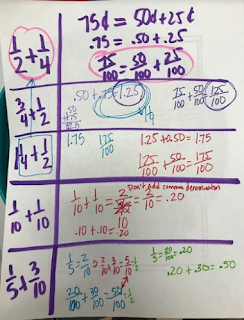 1/2 + 1/4
75¢ = 50¢ + 25¢
.75 = .50 + .25
75/100 = 50/100 + 25/100
3/4 + 1/2
.50 + .75 = 1.25
75/100 + 50/100 = 125/100
1 1/4 + 1/2
1.75 175/100
1.25 + 0.50 = 1.75
125/100 + 50/100 = 175/100
Don't add common denominators
1/10 + 1/10
1/10 + 1/10 = 2/10 = .20
.10 + .10 = .20
1/5 + 3/10
1/5 = 2/10
2/10 + 3/10 = 5/10 = 1/2
1/5 = 20/100 = .20
.20 + .30 = .50
20/100 + 30/100 = 50/100 = 1/2